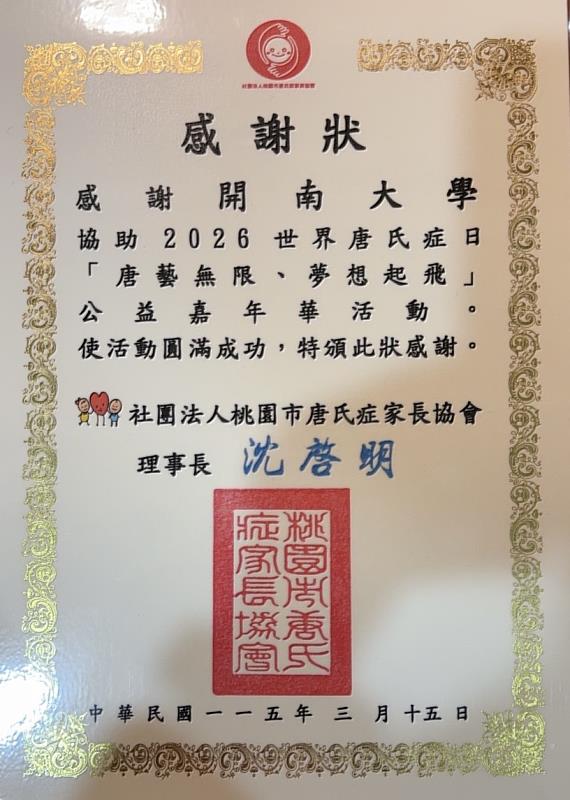 社團法人桃園市唐氏症家長協會
感謝狀
感謝開南大學
協助2026世界唐氏症日
「唐藝無限、夢想起飛」
公益嘉年華活動。
使活動圓滿成功，特頒此狀感謝。
社團法人桃園市唐氏症家長協會
理事長 沈啓明
桃園市唐氏
症家長協會
中華民國一一五年三月十五日